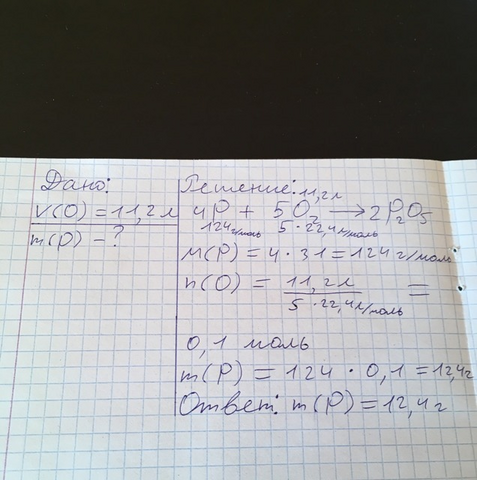 Дано:
V(O) = 11,2 л
m(P) - ?
Решение:
11,2 л
4P + 5O₂ → 2P₂O₅
124 г/моль 5·22,4 л/моль
M(P) = 4·31 = 124 г/моль
n(O) = 11,2 л / 5·22,4 л/моль =
0,1 моль
m(P) = 124 · 0,1 = 12,4 г
Ответ: m(P) = 12,4 г